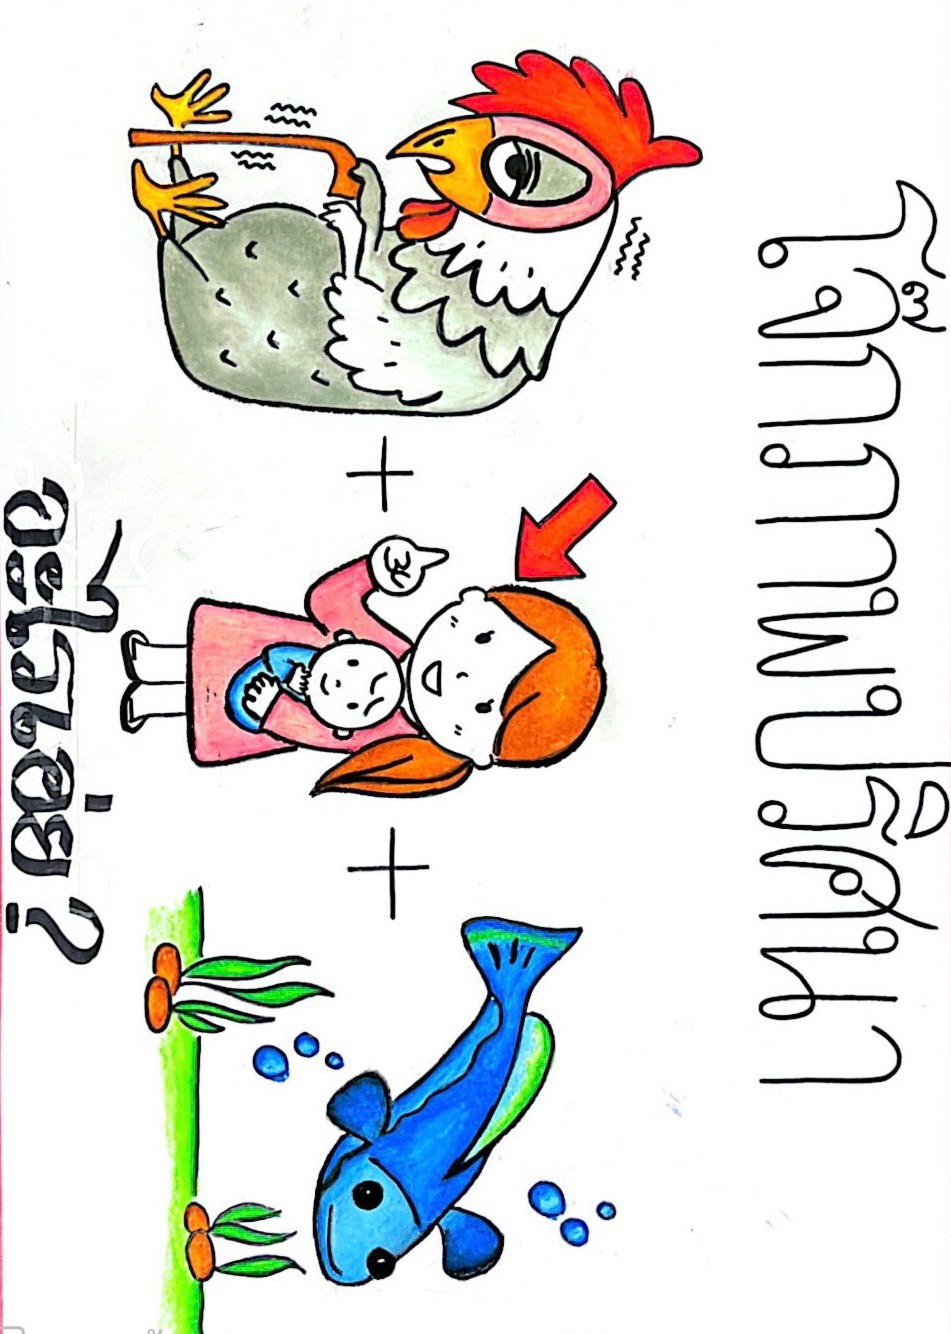 โจ๊กภาพปริศนา
อะไรเอ่ย?